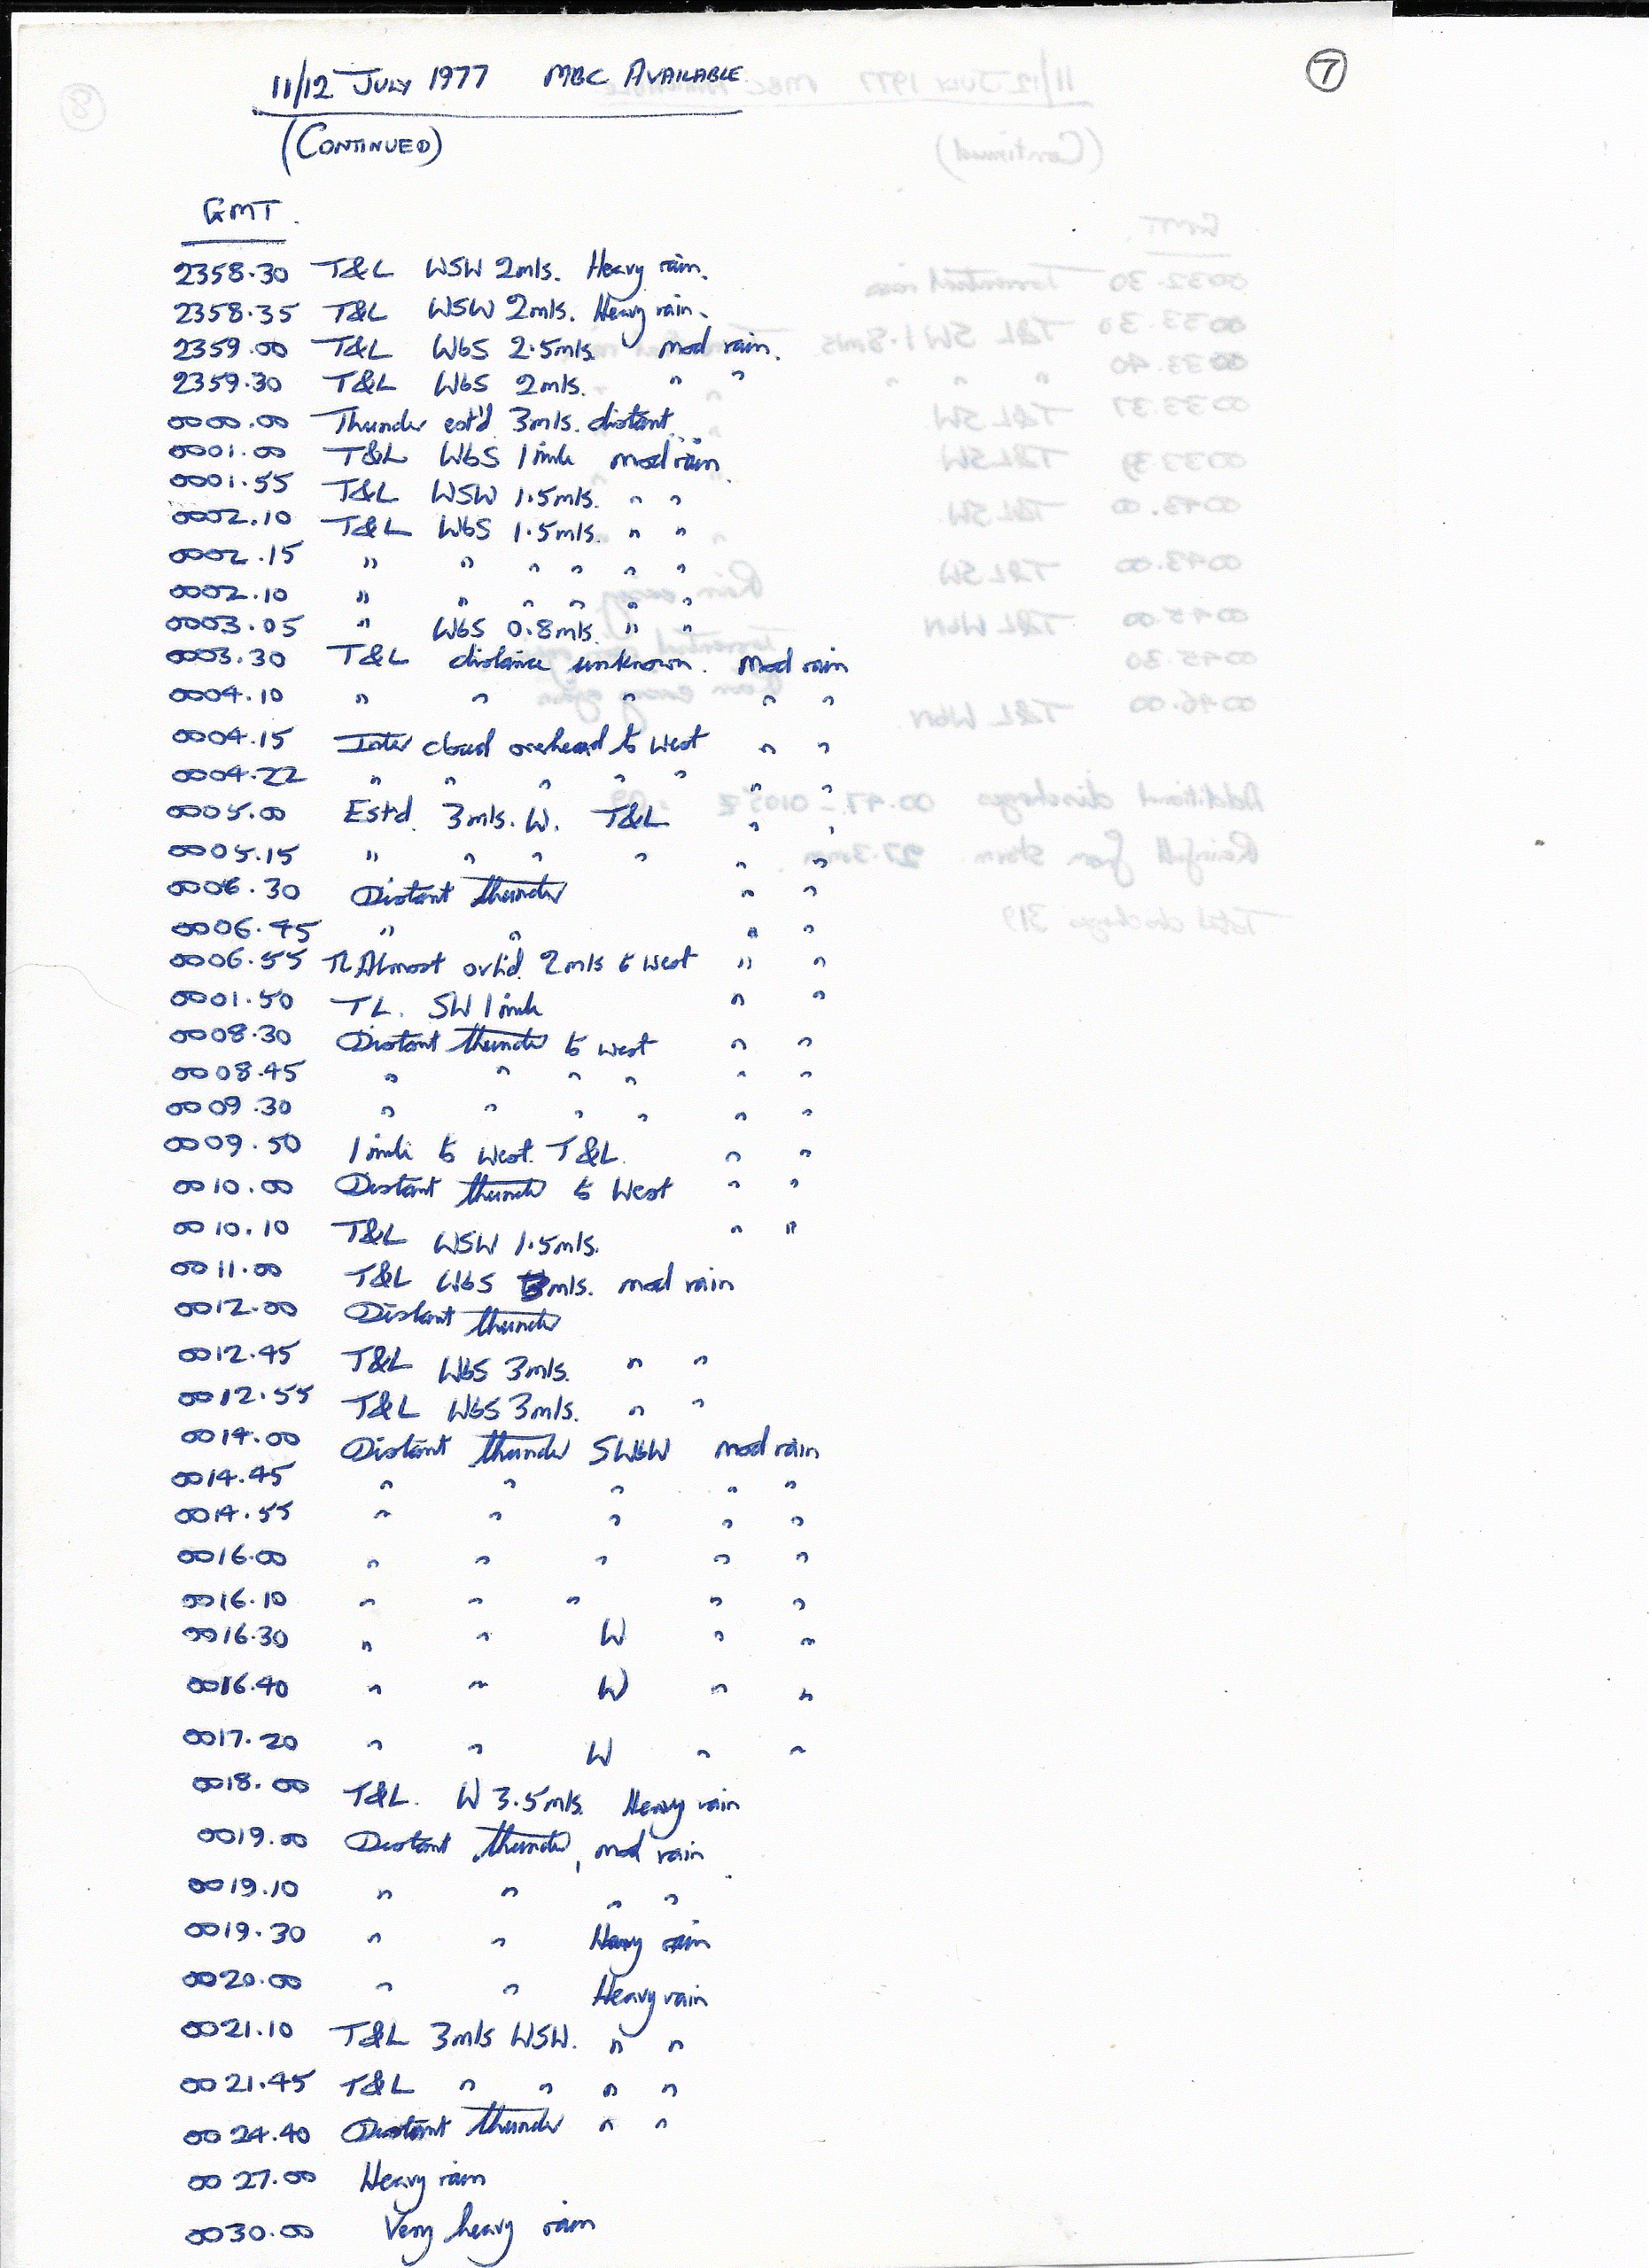 11/12 JULY 1977 MBC AVAILABLE
(CONTINUED)
7
GMT.
2358.30 T&L WSW 2mls. Heavy rain.
2358.35 T&L WSW 2mls. Heavy rain.
2359.00 T&L WbS 2.5mls mod rain.
2359.30 T&L WbS 2mls. " "
0000.00 Thunder est'd 3mls. distant.
0001.00 T&L WbS 1 mile mod rain
0001.55 T&L WSW 1.5mls. " "
0002.10 T&L WbS 1.5mls. " "
0002.15 " " " " " "
0002.10 " " " " " "
0003.05 " WbS 0.8mls. " "
0003.30 T&L distance unknown. Mod rain
0004.10 " " " " "
0004.15 Inter cloud overhead to West " "
0004.22 " " " " " " "
0005.00 Estd. 3mls. W. T&L " "
0005.15 " " " " " "
0006.30 Distant thunder " "
0006.45 " " " "
0006.55 TL Almost ovhd. 2mls to west " "
0001.50 TL. SW 1 mile " "
0008.30 Distant thunder to west " "
0008.45 " " " " " "
0009.30 " " " " " "
0009.50 1 mile to west. T&L. " "
0010.00 Distant thunder to West " "
0010.10 T&L WSW 1.5mls. " "
0011.00 T&L WbS 3mls. mod rain
0012.00 Distant thunder
0012.45 T&L WbS 3mls. " "
0012.55 T&L WbS 3mls. " "
0014.00 Distant thunder SWbW mod rain
0014.45 " " " " "
0014.55 " " " " "
0016.00 " " " " "
0016.10 " " " " "
0016.30 " " W " "
0016.40 " " W " "
0017.20 " " W " "
0018.00 T&L. W 3.5mls. Heavy rain
0019.00 Distant thunder, mod rain
0019.10 " " " "
0019.30 " " Heavy rain
0020.00 " " Heavy rain
0021.10 T&L 3mls WSW. " "
0021.45 T&L " " " "
0024.40 Distant thunder " "
0027.00 Heavy rain
0030.00 Very heavy rain